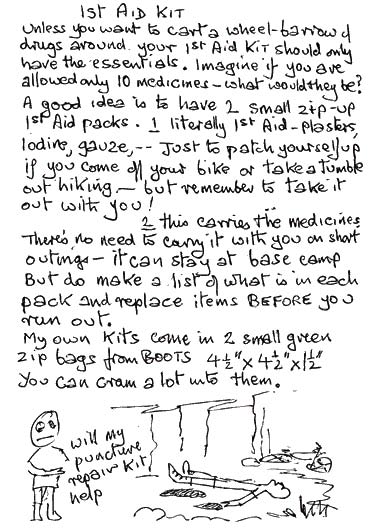 1ST AID KIT
Unless you want to cart a wheel-barrow of
drugs around your 1st Aid Kit should only
have the essentials. Imagine if you are
allowed only 10 medicines - what would they be?
A good idea is to have 2 small zip-up
1st Aid packs. 1 literally 1st Aid - plasters,
Iodine, gauze, -- Just to patch yourself up
if you come off your bike or take a tumble
out hiking - but remember to take it
out with you!
2 this carries the medicines
There's no need to carry it with you on short
outings - it can stay at base camp
But do make a list of what is in each
pack and replace items BEFORE you
run out.
My own kits come in 2 small green
zip bags from BOOTS 4½" x 4½" x 1½"
You can cram a lot into them.
will my
puncture
repair kit
help